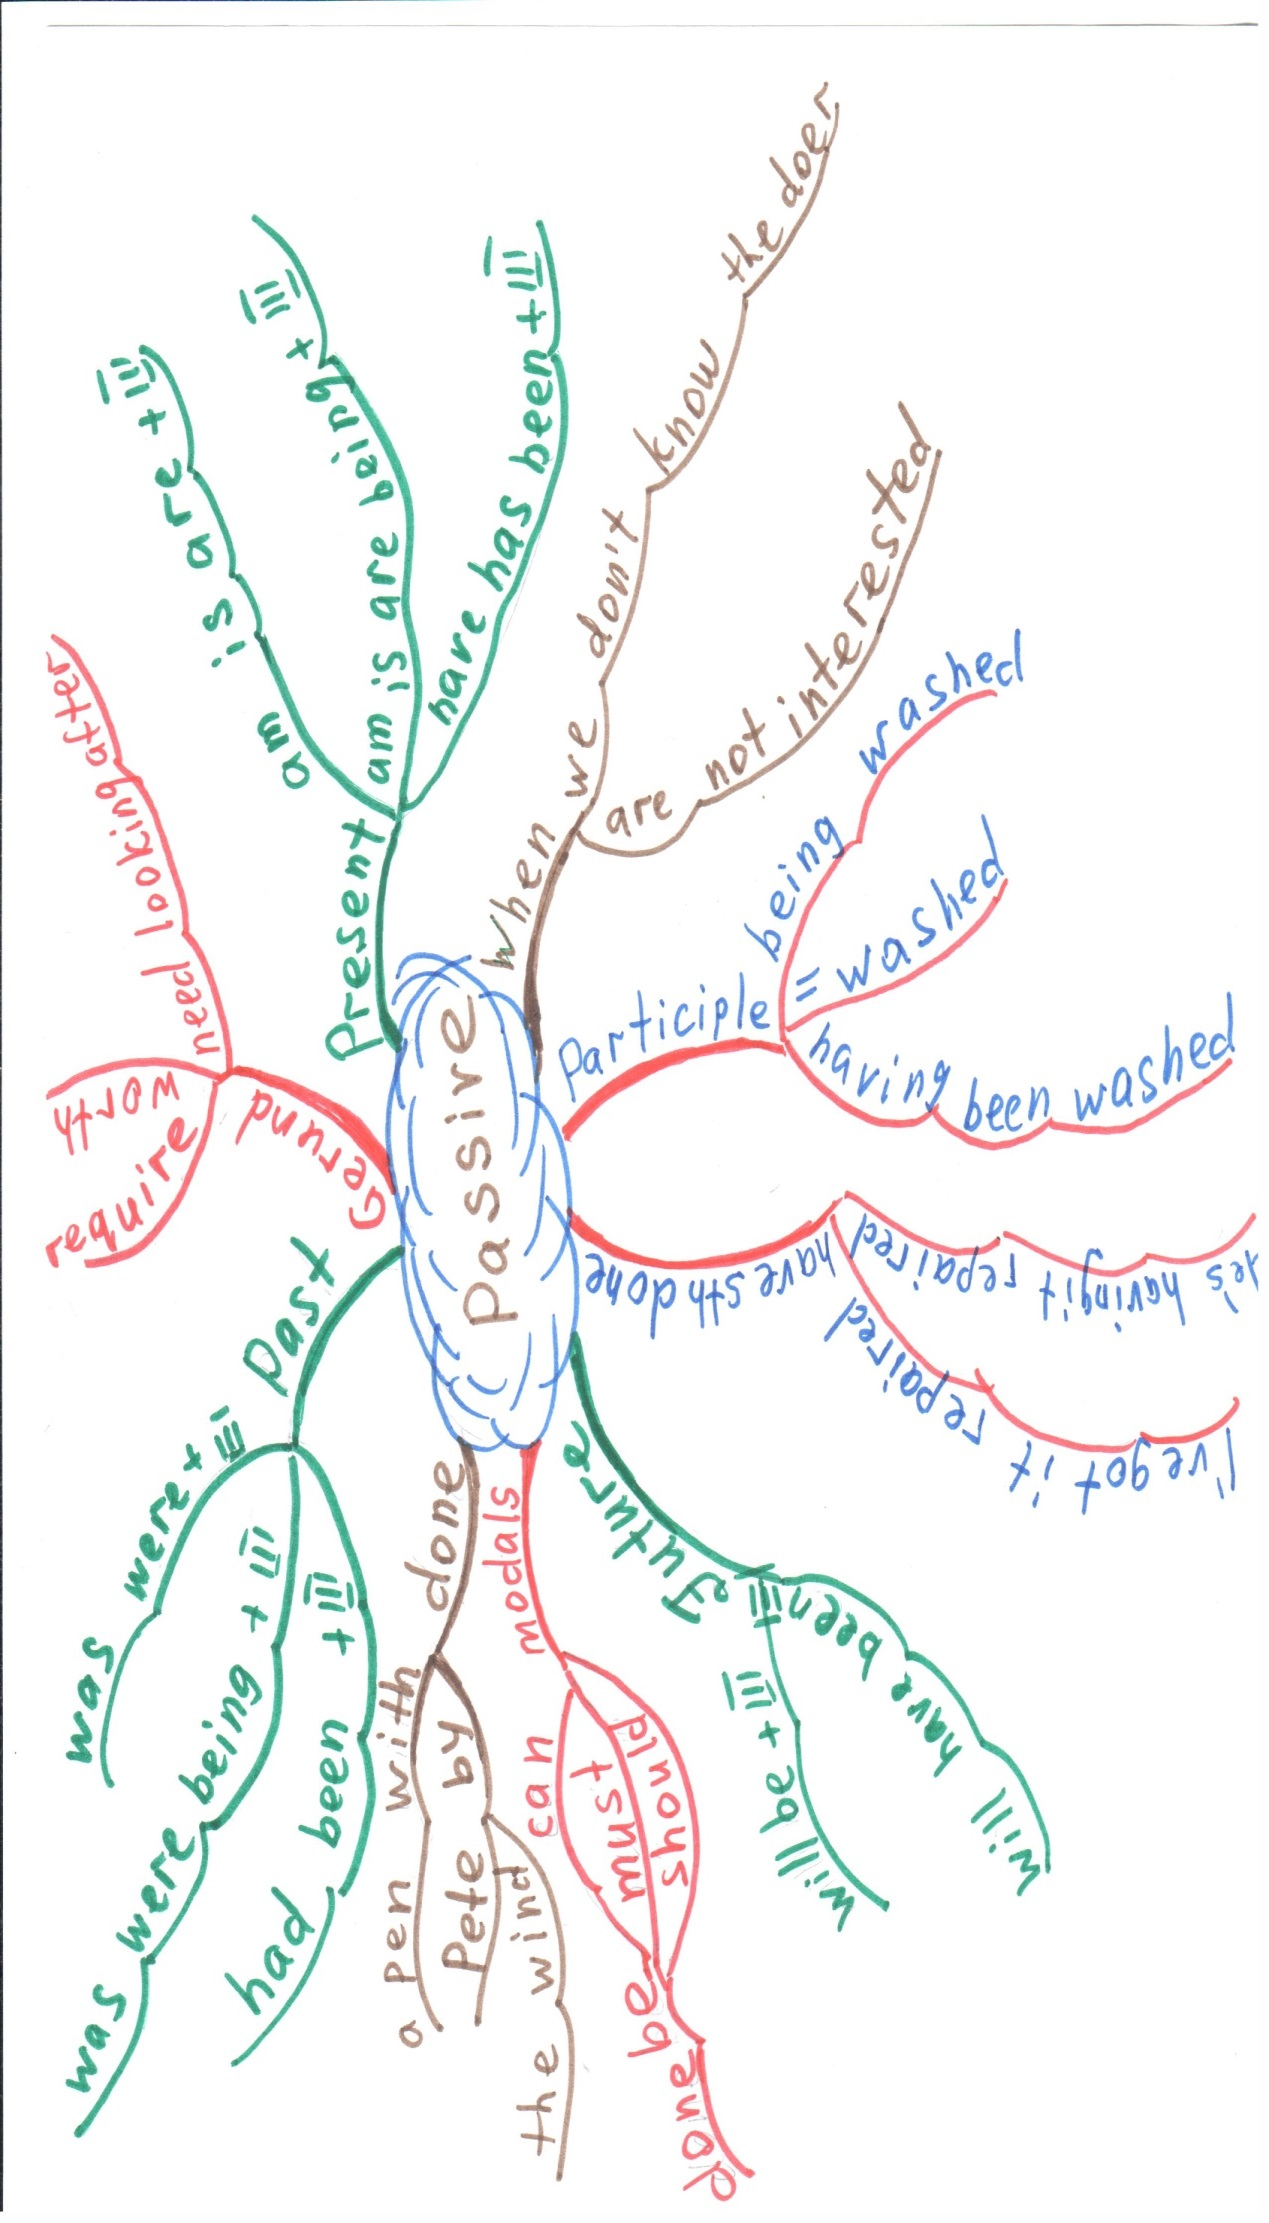 Passive
Present
am is are + III
am is are being + III
have has been + III
when we don't know the doer
are not interested
Participle
being washed
= washed
having been washed
have sth done
have it repaired
He's having it repaired
I've got it repaired
Future
will be + III
will have been III
modals
can
must
should
be done
done
with a pen
by Pete
the wind
Past
was were + III
was were being + III
had been + III
Gerund
need looking after
worth
require